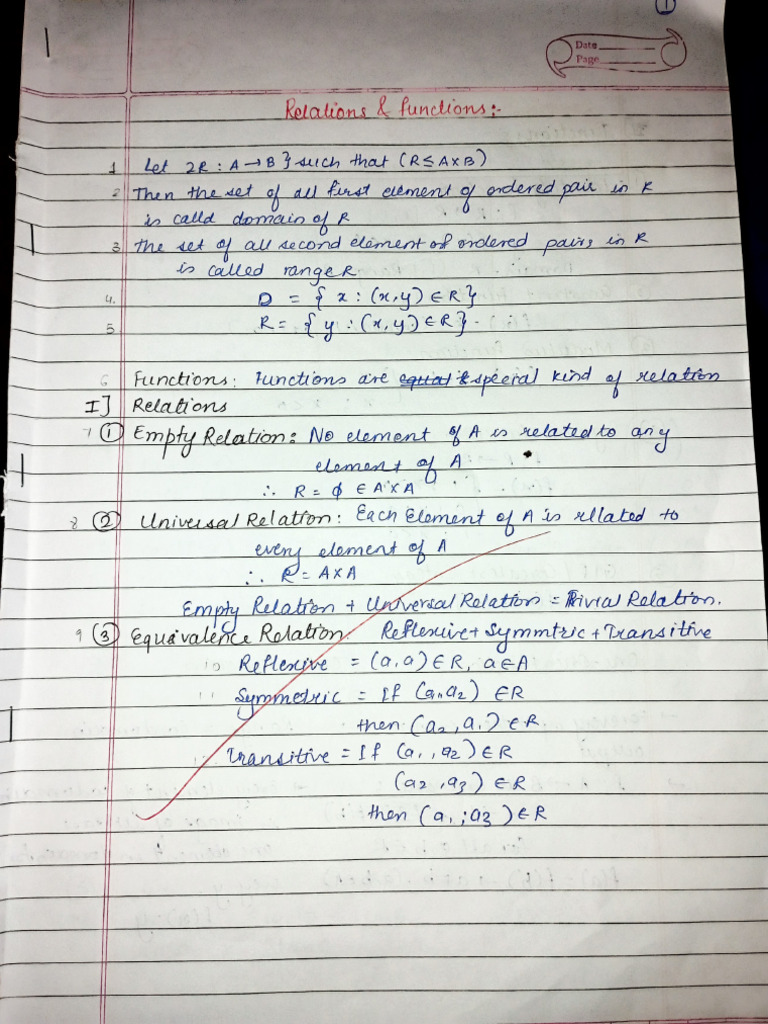 1
Date
Page
Relations & functions:-
1 Let 2R : A → B } such that (R ≤ A×B)
2 Then the set of all first element of ordered pair in R
is calld domain of R
3 The set of all second element of ordered pairs in R
is called range R
4. D = { x : (x,y) ∈ R }
5 R = { y : (x,y) ∈ R } .
6 Functions: Functions are equal special kind of relation
I] Relations
7 ① Empty Relation: No element of A is related to any
element of A
∴ R = ϕ ∈ A×A
8 ② Universal Relation: Each Element of A is rllated to
every element of A
∴ R = A×A
Empty Relation + Universal Relation = Trivial Relation.
9 ③ Equivalence Relation: Reflexive + Symmtric + Transitive
10 Reflexive = (a,a) ∈ R, a ∈ A
11 Symmetric = If (a₁,a₂) ∈ R
then (a₂,a₁) ∈ R
Transitive = If (a₁,a₂) ∈ R
(a₂,a₃) ∈ R
then (a₁;a₃) ∈ R